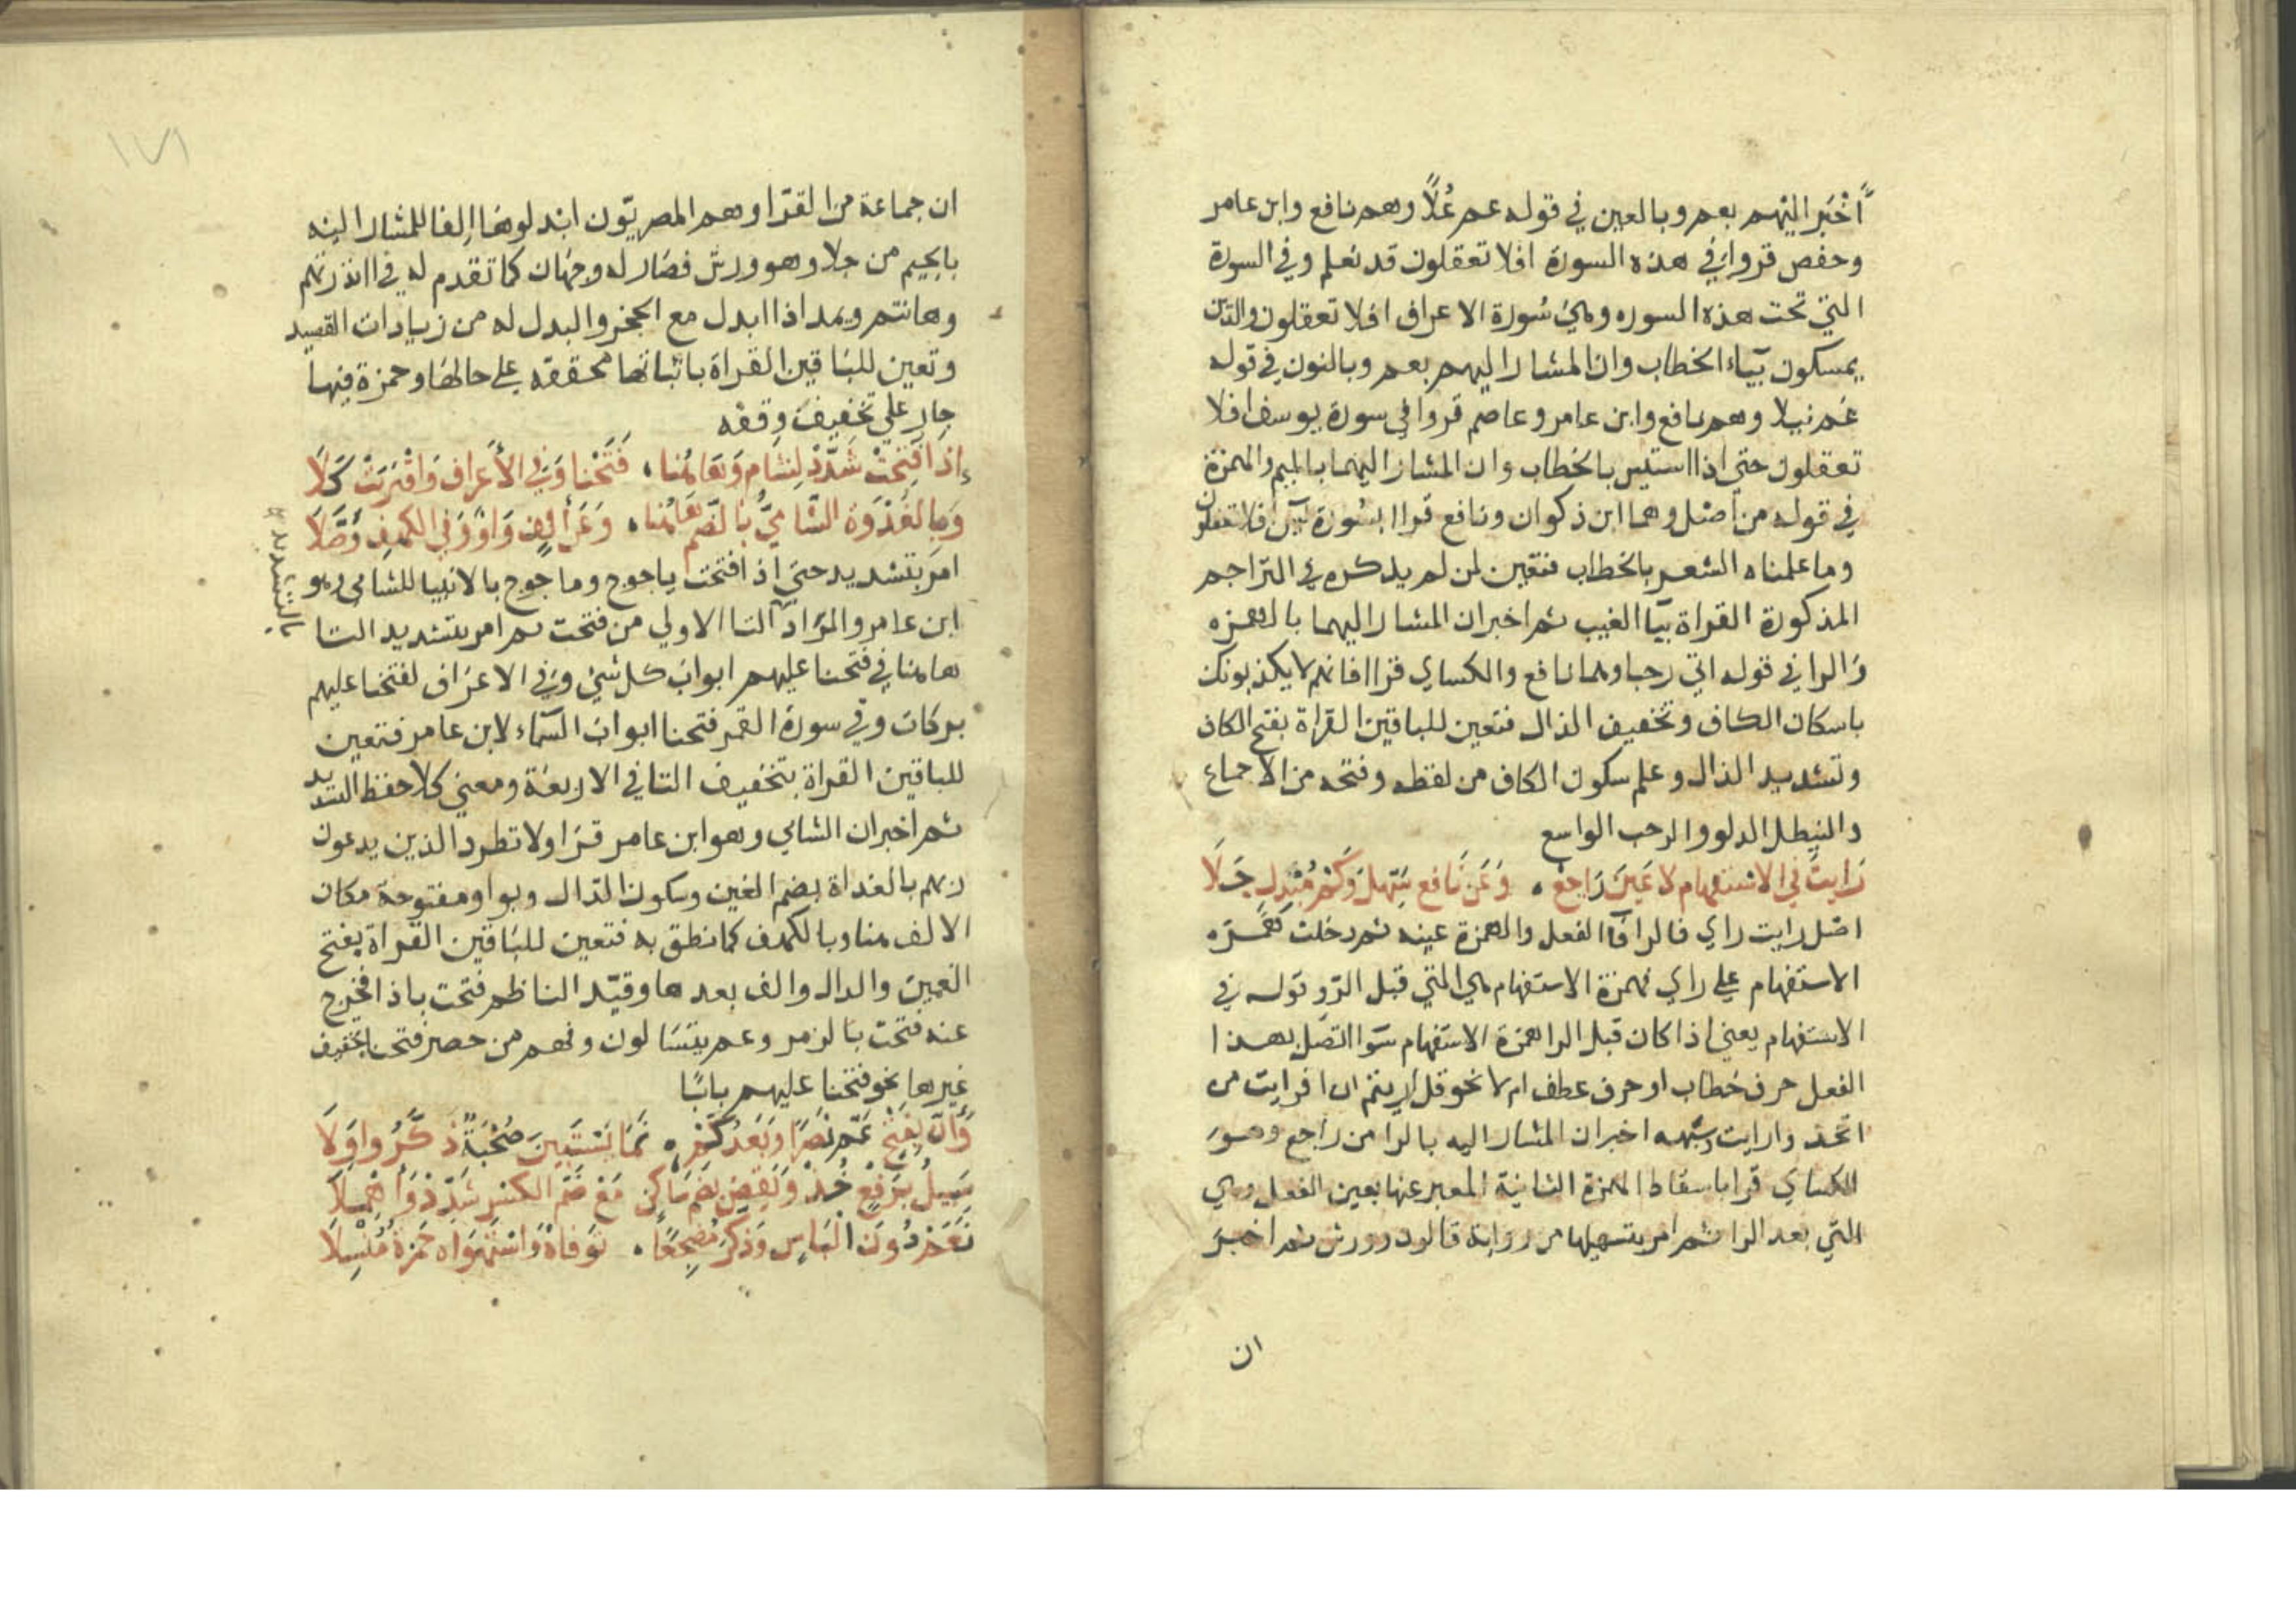 أخبر اليهم بعم وبالعين في قوله عم علًا وهم نافع وابن عامر
وحفص قروا في هذه السورة افلا تعقلون قد نعلم وفي السورة
التي تحت هذه السوره وهي سورة الاعراف افلا تعقلون والذين
يمسكون بتاء الخطاب وان المشار اليهم بعم وبالنون في قوله
عم نيلا وهم نافع وابن عامر وعاصم قروا في سورة يوسف افلا
تعقلون حتي اذا استيس بالخطاب وان المشار اليهما بالميم والهمزة
في قوله من اصل وهما ابن ذكوان ونافع قراا بسورة يس افلا تعقلون
وما علمناه الشعر بالخطاب فتعين لمن لم يذكره في التراجم
المذكورة القراة بيا الغيب ثم اخبر ان المشار اليهما بالهمزه
والرا في قوله اتي رحبا وهما نافع والكساي قراا فانهم لا يكذبونك
باسكان الكاف وتخفيف الذال فتعين للباقين القراة بفتح الكاف
وتشديد الذال وعلم سكون الكاف من لفظه وفتحه من الاجماع
والنيطل الدلو والرحب الواسع
رَايتَ في الاستفهام لا عينَ رَاجعٌ ۰ وَعَن نَافع سَهّل وَكم مُبْدِلٍ جَلَا
اصل رايت راي فالرا فاآ الفعل والهمزة عينه ثم دخلت همزه
الاستفهام علي راي فهمزة الاستفهام هي التي قبل الرا وقوله في
الاستفهام يعني اذا كان قبل الرا همزة الاستفهام سوا اتصل بهذا
الفعل حرف خطاب او حرف عطف ام لا نحو قل اريتم ان افرايت من
اتخذ وارايت وشبهه اخبر ان المشار اليه بالرا من راجع وهو
الكساي قرا باسقاط الهمزة الثانية المعبر عنها بعين الفعل وهي
التي بعد الرا ثم امر بتسهيلها من رواية قالون وورش ثم اخبر
ان
١٧١
ان جماعة من القرا وهم المصريّون ابدلوها الفا للمشار اليه
بالجيم من جلا وهو ورش فصار له وجهان كما تقدم له في اانذرتهم
وهانتم ويمد اذا ابدل مع الحجز والبدل له من زيادات القصيد
وتعين للباقين القراة باثباتها محققه علي حالها وحمزة فيها
جار علي تخفيف وقفه
إذَا فُتِحَتْ شَدِّدْ لِشَامٍ وَهَاهُنا ۰ فَتَحْنا وَفي الأعراف وَاقْتَرَبَتْ كَلَا
وَبالغُدْوَة الشّاميُّ بالضّم هَاهُنا ۰ وَعَن ألِفٍ وَاوٌ وَفي الكهف وَصَّلَا
امر بتشديد حتي اذا فتحت ياجوج وماجوج بالانبيا للشامي وهو
ابن عامر والمراد التا الاولي من فتحت ثم امر بتشديد التا
هاهنا في فتحنا عليهم ابواب كل شي وفي الاعراف لفتحنا عليهم
بركات وفي سورة القمر فتحنا ابواب السماء لابن عامر فتعين
للباقين القراة بتخفيف التا في الاربعة ومعني كلا حفظ التشديد
ثم اخبر ان الشامي وهو ابن عامر قرا ولا تطرد الذين يدعون
ربهم بالغداة بضم الغين وسكون الدال وبواو مفتوحة مكان
الالف هنا وبالكهف كما نطق به فتعين للباقين القراة بفتح
الغين والدال والف بعدها وقيد الناظم فتحت باذا فخرج
عنه فتحت بالزمر وعم يتسالون وفهم من حصر فتحنا تخفيف
غيرها نحو فتحنا عليهم بابًا
وَأنَّ بفتحٍ عَمَّ نَصرًا وَبَعْدُ كَمْ ۰ نَمَا يَسْتَبِينَ صُحْبَةٌ ذَكَّرُوا وِلَا
سَبيلَ بِرَفعٍ خُذْ وَيَقضِ بضَمّ سَاكِن مَعْ ضَمّ الكسر شَدِّدْ وَأهْمِلَا
نَعَمْ دُونَ الْبَاسٍ وَذَكَّرَ مُضْجِعًا ۰ تَوَفَاهُ وَاسْتَهْوَاه حَمزَةُ مُنْسِلَا
بالتشديد